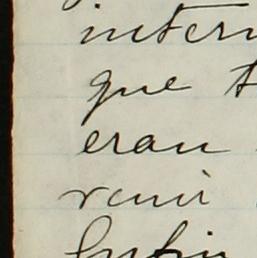 intern
que t
eran
venir